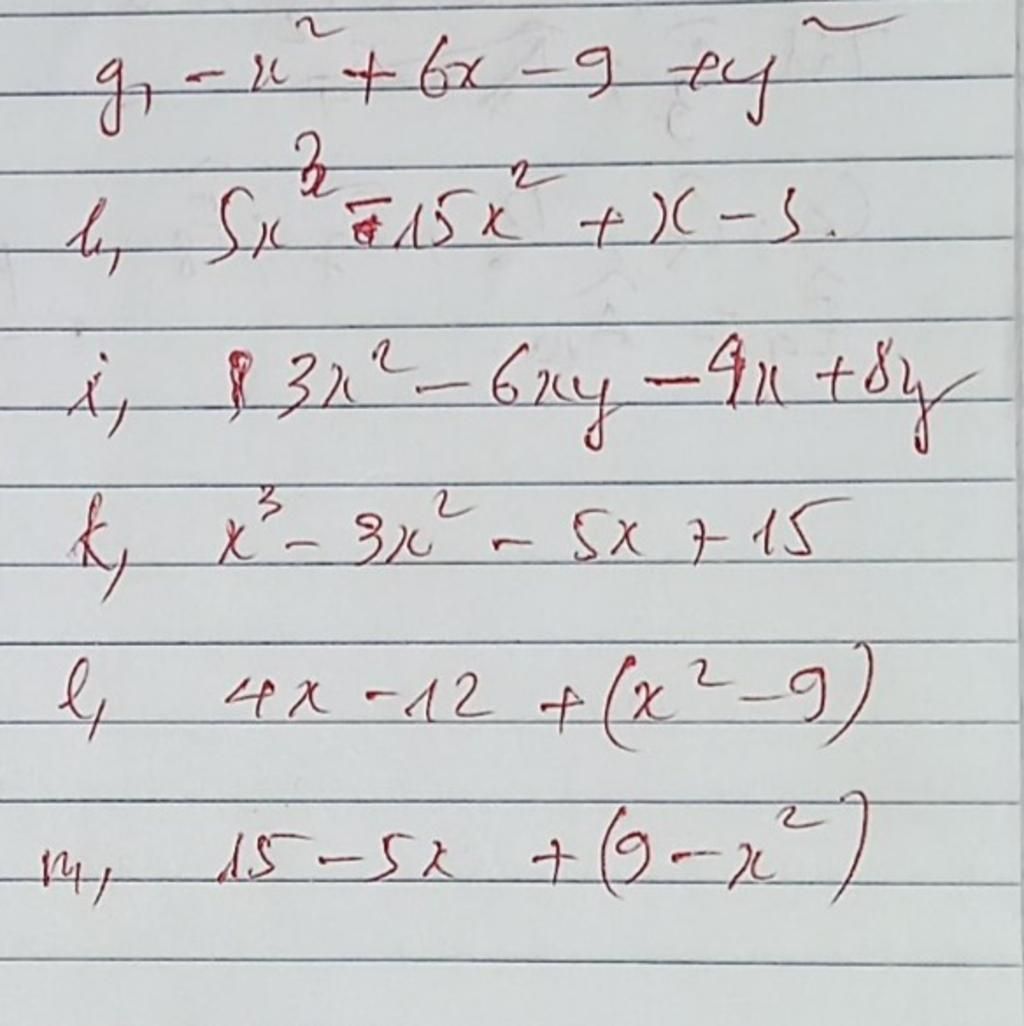 g, -x² + 6x - 9 + y²
h, 5x³ - 15x² + x - 3.
i, 3x² - 6xy - 4x + 8y
k, x³ - 3x² - 5x + 15
l, 4x - 12 + (x² - 9)
m, 15 - 5x + (9 - x²)